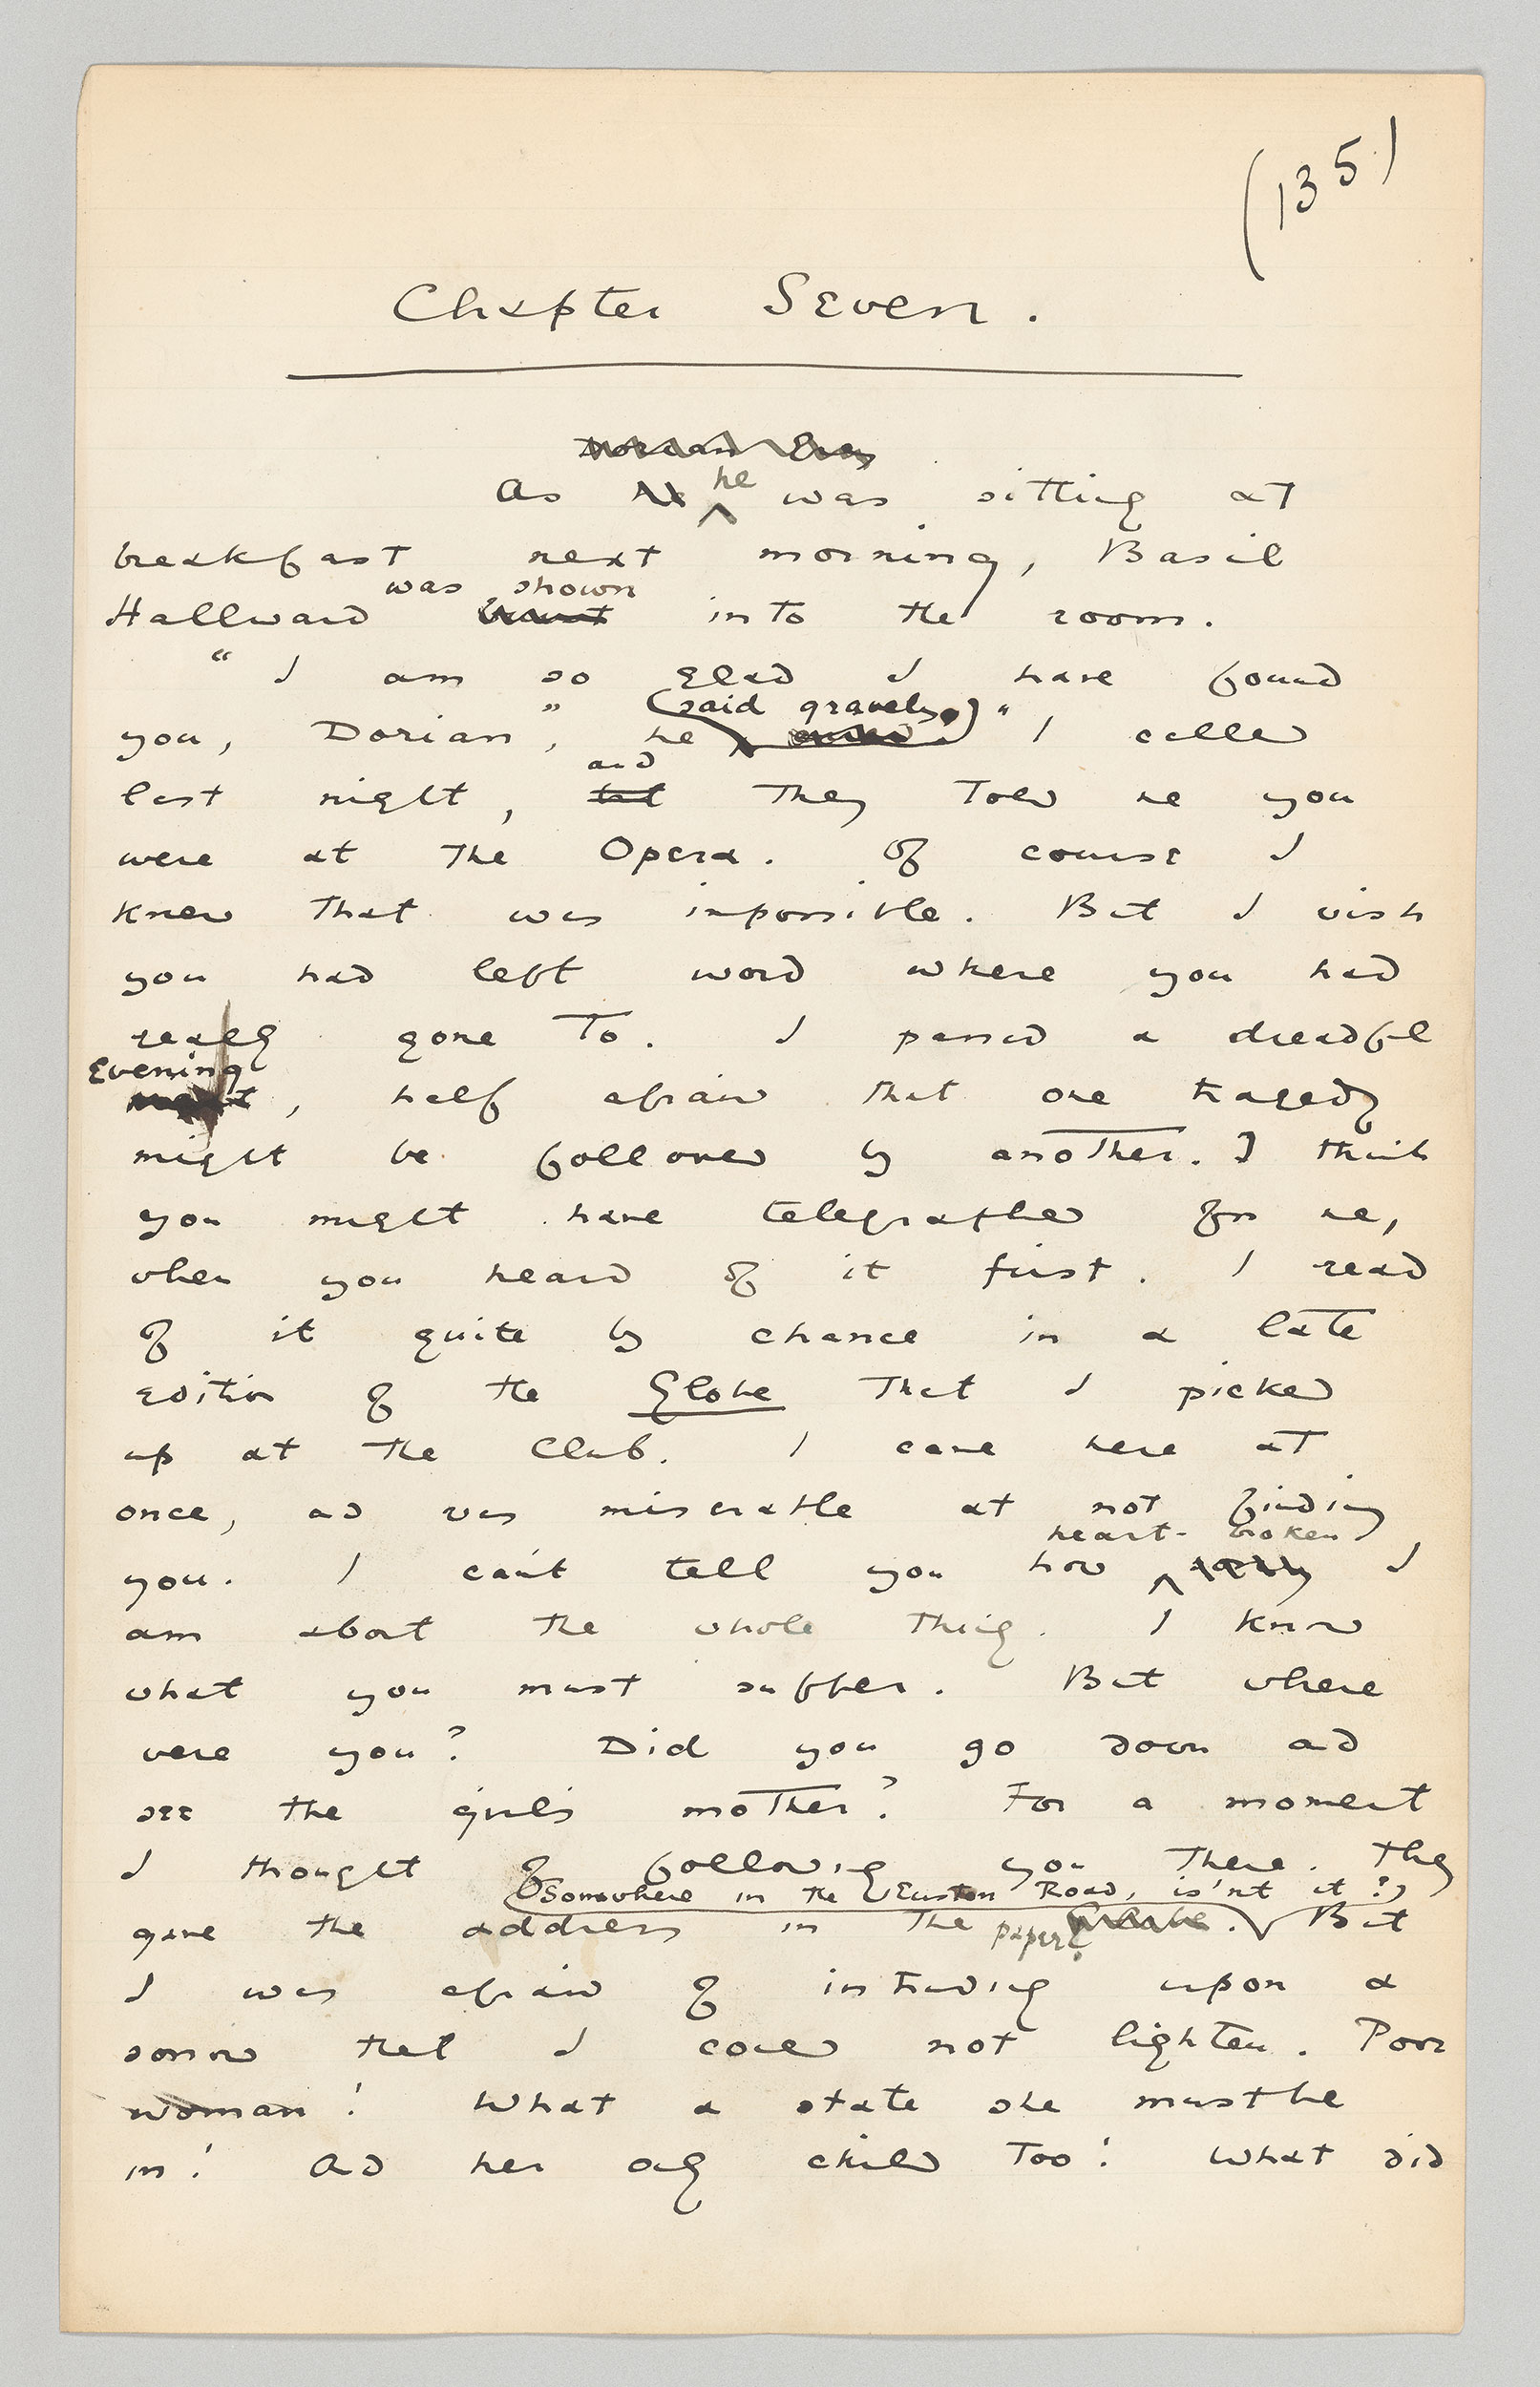 (135)
Chapter Seven.
Dorian Gray
As he was sitting at
breakfast next morning, Basil
was shown
Hallward burst into the room.
"I am so glad I have found
said gravely.
you, Dorian", he cried. "I called
and
last night, but they told me you
were at the Opera. Of course I
knew that was impossible. But I wish
you had left word where you had
really gone to. I passed a dreadful
Evening
night, half afraid that one tragedy
might be followed by another. I think
you might have telegraphed for me,
when you heard of it first. I read
of it quite by chance in a late
edition of the Globe that I picked
up at the Club. I came here at
once, and was miserable at not finding
heart-broken
you. I can't tell you how sorry I
am about the whole thing. I know
what you must suffer. But where
were you? Did you go down and
see the girl's mother? For a moment
I thought of following you there. They
Somewhere in the Euston Road, is'nt it?
gave the address in the paper. Globe. But
I was afraid of intruding upon a
sorrow that I could not lighten. Poor
woman! What a state she must be
in! And her only child too! What did